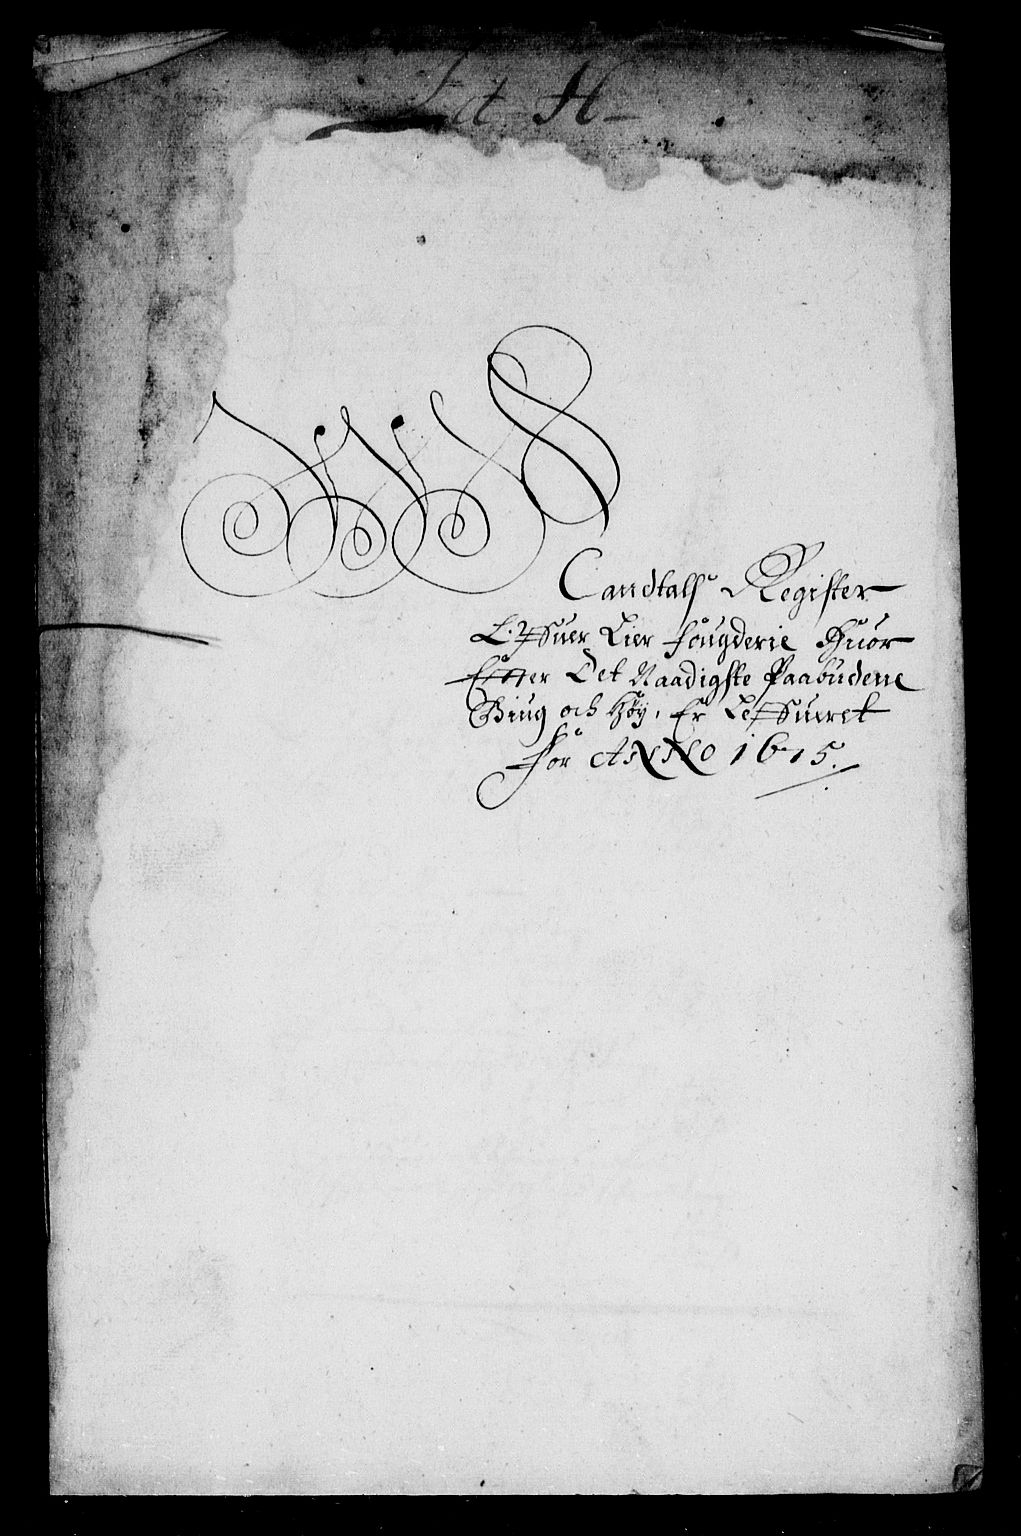 Lit H
Mandtals Register
Offuer Lier Fougderie Huor
Efter Det Naadigste Paabudene
Biug och Høy, Er Leffueret
For ANNO 1675.